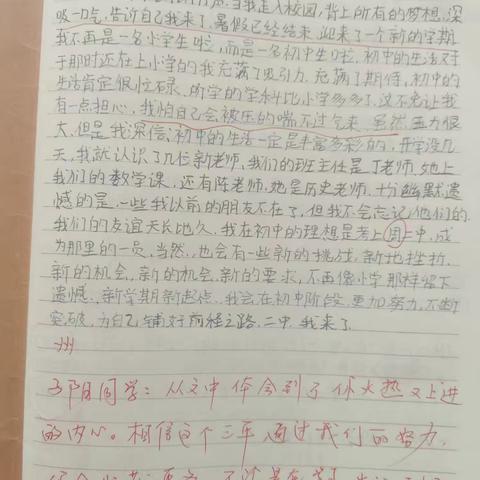 走入校园,背上所有的梦想,深
吸一口气,告诉自己我来了,暑假已经结束,迎来了一个新的学期
我不再是一名小学生啦,而是一名初中生啦,初中的生活对
于那时还在上小学的我充满了吸引力,充满了期待,初中的
生活肯定很忙碌,所学的学科比小学多多了,这不免让我
有一点担心,我怕自己会被压的喘不过气来,虽然压力很
大,但是我深信,初中的生活一定是丰富多彩的,开学没几
天,我就认识了几位新老师,我们的班主任是丁老师,她上
我们的数学课,还有陈老师,她是历史老师,十分幽默,遗
憾的是,一些我以前的朋友不在了,但我不会忘记他们的,
我们的友谊天长地久,我在初中的理想是考上周上中,成
为那里的一员,当然,也会有一些新的挑战,新地挫折,
新的机会,新的机会,新的要求,不再像小学那样留下
遗憾,新学期新起点,我会在初中阶段,更加努力,不断
突破,为自己铺好前程之路,二中,我来了
州
阳同学:从文中体会到了你火热又上进
的内心。相信这个三年,通过我们的努力,